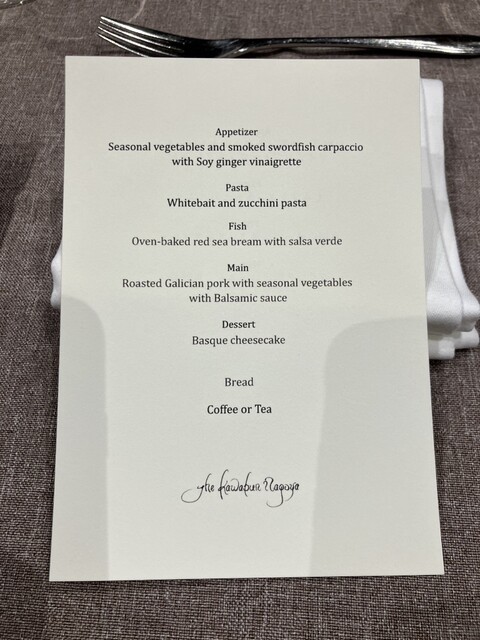 Appetizer
Seasonal vegetables and smoked swordfish carpaccio
with Soy ginger vinaigrette
Pasta
Whitebait and zucchini pasta
Fish
Oven-baked red sea bream with salsa verde
Main
Roasted Galician pork with seasonal vegetables
with Balsamic sauce
Dessert
Basque cheesecake
Bread
Coffee or Tea
The Kawabun Nagoya